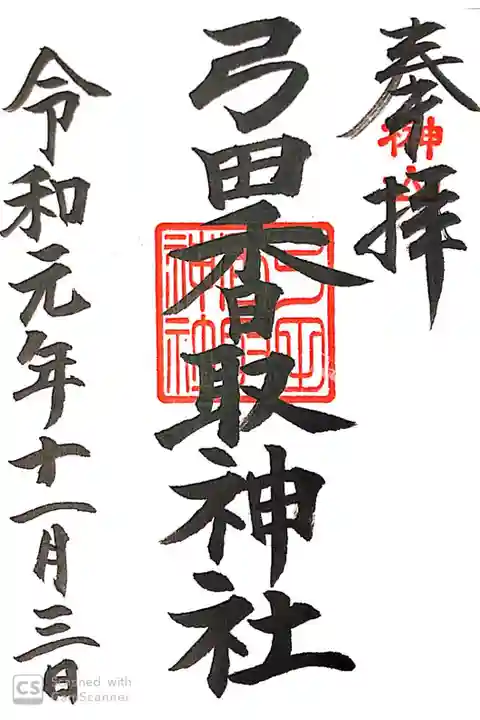 奉拝
弓田香取神社
令和元年十一月三日
CS Scanned with
CamScanner